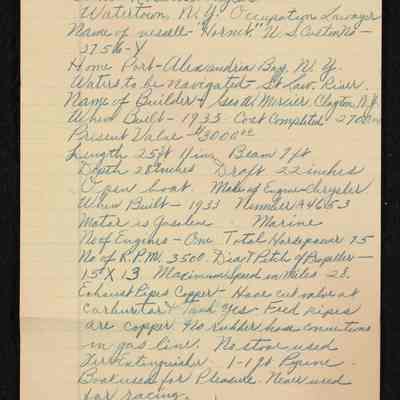 Watertown, N.Y. Occupation Lawyer
Name of vessell - "Hornet" U.S. Customs -
Home Port - Alexandria Bay, N.Y.
Waters to be navigated - St Law. River.
Name of Builder - Geo A. Mercier Clayton, N.Y.
When Built - 1933 Cost Completed
Present Value - $3000.00
Length 25 ft 4 in, Beam 7 ft
Depth 28 inches Draft 22 inches
Open boat Make of Engine - Chrysler
When Built - 1933 Number A4653
Motor is Gasoline Marine
No of Engines - One Total Horsepower 75
No of R.P.M. 3500. Dia & Pitch of Propeller -
15 X 13 Maximum Speed in Miles 28.
Exhaust Pipes Copper - Have cut valve at
Carburetor & Tank Yes Feed pipes
are copper No Rubber hose connections
in gas line. No stove used
Fire Extinguisher 1 - 1 qt Pyrene.
Boat used for Pleasure. Never used
for racing.